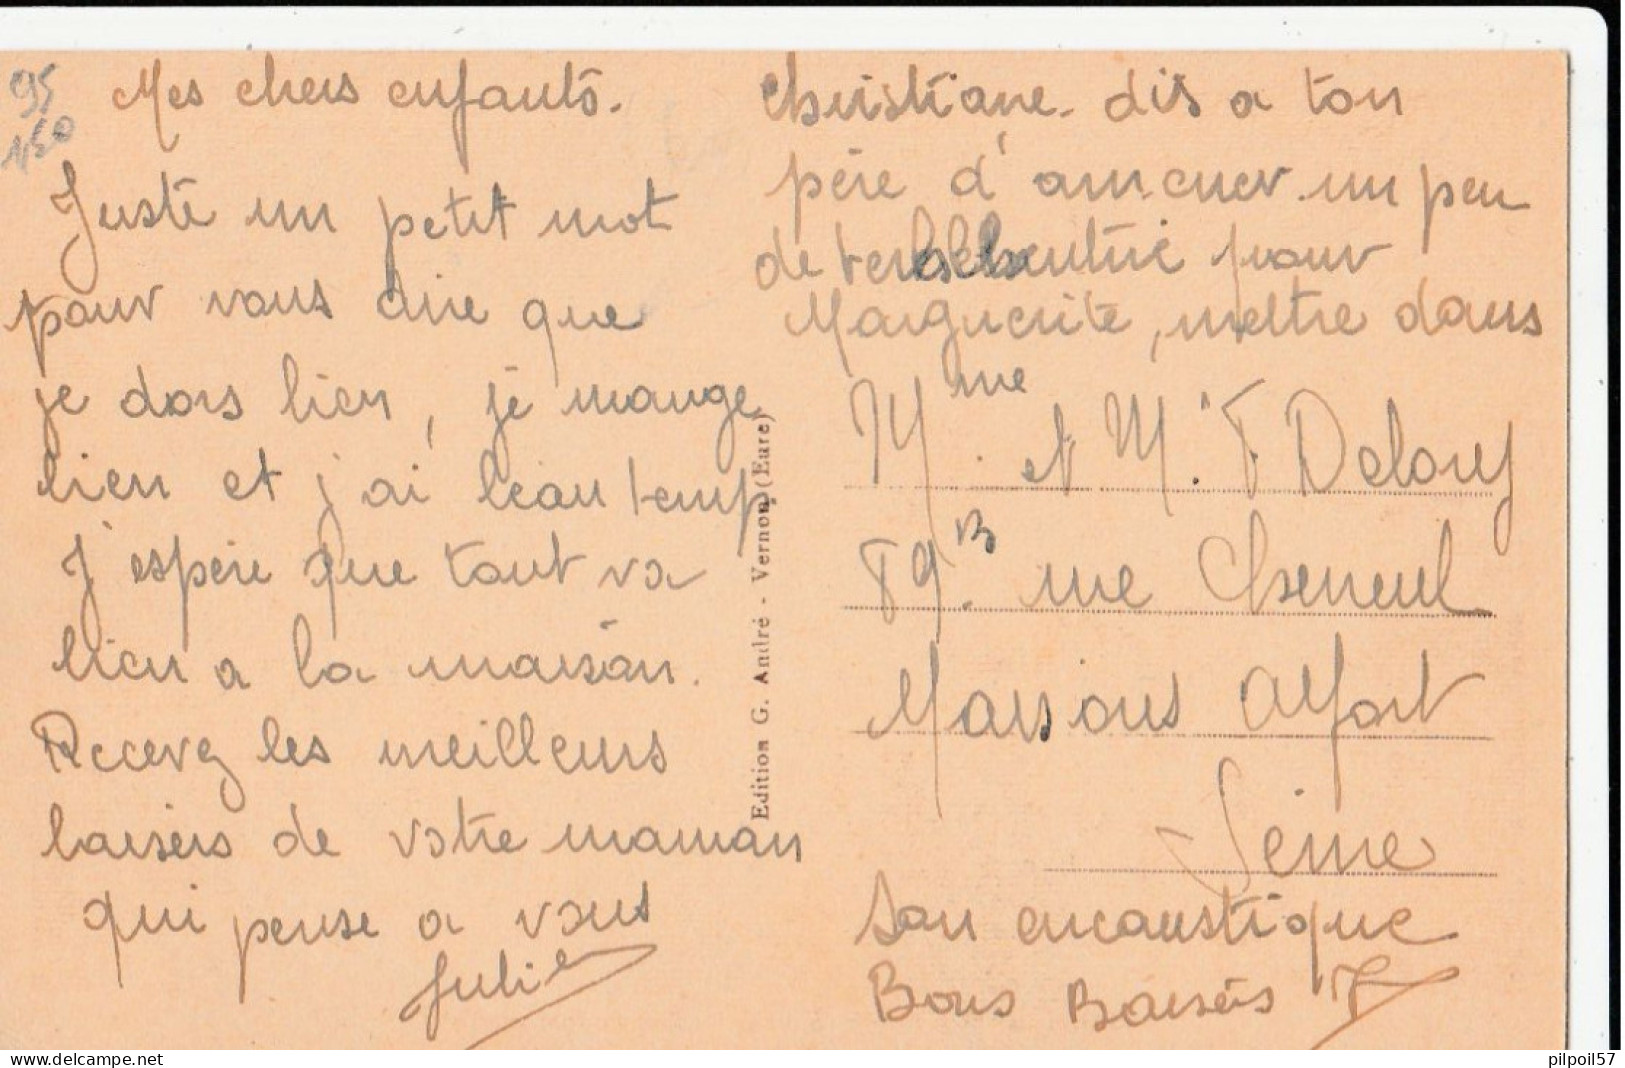 95
150
Mes chers enfants.
Juste un petit mot
pour vous dire que
je dors bien, je mange
bien et j'ai beau temps
J'espère que tout va
bien a la maison.
Recevez les meilleurs
baisers de votre maman
qui pense a vous
Julie
Edition G. André - Vernon (Eure)
Christiane. dis a ton
père d'amener un peu
de pour
Marguerite, mettre dans
Mme et M. F Delouy
59 B. rue Cheneul
Maisons Alfort
Seine
son encaustique
Bons Baisers J
www.delcampe.net
pilpoil57